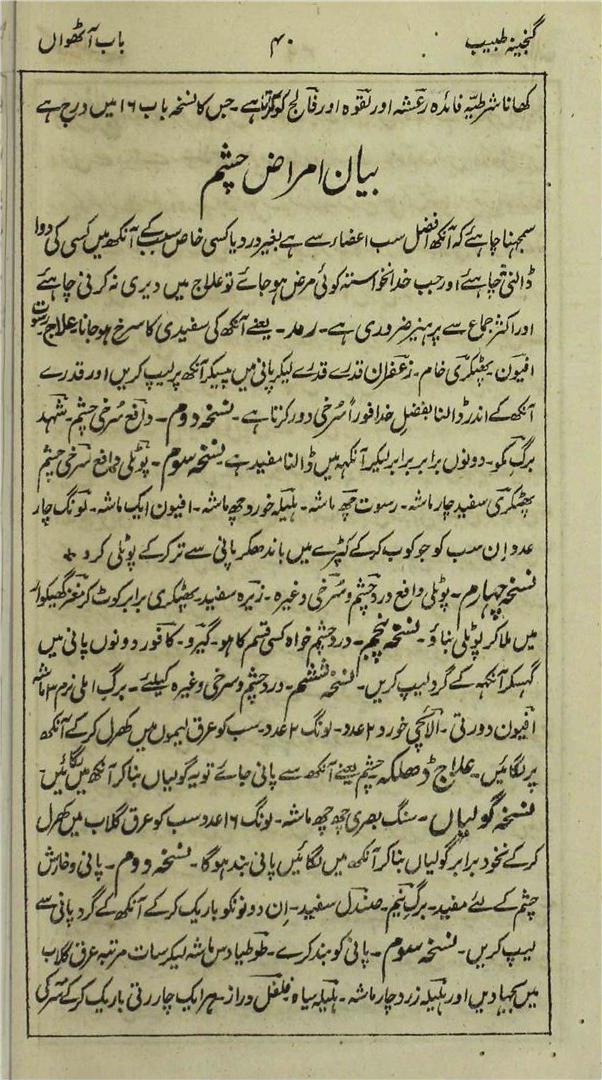 گنجینہ طبیب ۴۰ باب آٹھواں
کھانا شرطیہ فائدہ رعشہ اور لقوہ اور فالج کو کرتا ہے۔ جس کا نسخہ باب ۱۶ میں درج ہے
بیان امراض چشم
سمجھنا چاہئے کہ آنکھ افضل سب اعضاء سے ہے بغیر درد یا کسی خاص سبب کے آنکھ میں کسی کی دوا
ڈالنی نچاہئے اور جب خدانخواستہ کوئی مرض ہو جائے تو علاج میں دیری نہ کرنی چاہئے
اور اکثر جماع سے پرہیز ضروری ہے۔ رمد۔ یعنے آنکھ کی سفیدی کا سرخ ہو جانا۔ علاج۔ رسوت
افیون۔ پھٹکری خام۔ زعفران قدرے قدرے لیکر پانی میں پیسکر آنکھ پر لیپ کریں اور قدرے
آنکھ کے اندر ڈالنا بفضل خدا فوراً سرخی دور کرتا ہے۔ نسخہ دوم۔ دافع سرخی چشم۔ شہد
برگ مکو۔ دونوں برابر برابر لیکر آنکھہ میں ڈالنا مفید ہے نسخہ سوم۔ پوٹلی دافع سرخی چشم
پھٹکری سفید چار ماشہ۔ رسوت چھ ماشہ۔ ہلیلہ خورد چھ ماشہ۔ افیون ایک ماشہ۔ لونگ چار
عدد ان سب کو جوکوب کر کے کپڑے میں باندھکر پانی سے تر کر کے پوٹلی کرو
نسخہ چہارم۔ پوٹلی دافع درد چشم و سرخی وغیرہ۔ زیرہ سفید پھٹکری برابر کوٹ کر مغز گھیکوار
میں ملا کر پوٹلی بناؤ۔ نسخہ پنجم۔ درد چشم خواہ کسی قسم کا ہو۔ گیرو۔ کافور دونوں پانی میں
گھسکر آنکھہ کے گرد لیپ کریں۔ نسخہ ششم۔ درد چشم و سرخی وغیرہ کیلئے۔ برگ املی نرم ۳ ماشہ
افیون دو رتی۔ الائچی خورد ۲ عدد۔ لونگ ۲ عدد۔ سب کو عرق لیموں میں کھرل کر کے آنکھ
پر لگائیں۔ علاج ڈھلکہ چشم یعنے آنکھ سے پانی جائے تو یہ گولیاں بنا کر آنکھ میں لگائیں
نسخہ گولیاں۔ سنگ بصری چھ چھ ماشہ۔ لونگ ۱۶ عدد سب کو عرق گلاب میں کھرل
کر کے نخود برابر گولیاں بنا کر آنکھ میں لگائیں پانی بند ہوگا۔ نسخہ دوم۔ پانی و خارش
چشم کے لئے مفید۔ برگ نیم۔ صندل سفید۔ ان دونونکو باریک کر کے آنکھ کے گرد پانی سے
لیپ کریں۔ نسخہ سوم۔ پانی کو بند کرے۔ طوطیا دس ماشہ لیکر سات مرتبہ عرق گلاب
میں بجھا دیں اور ہلیلہ زرد چار ماشہ۔ ہلیلہ سیاہ فلفل دراز۔ ہر ایک چار رتی باریک کر کے سرکی